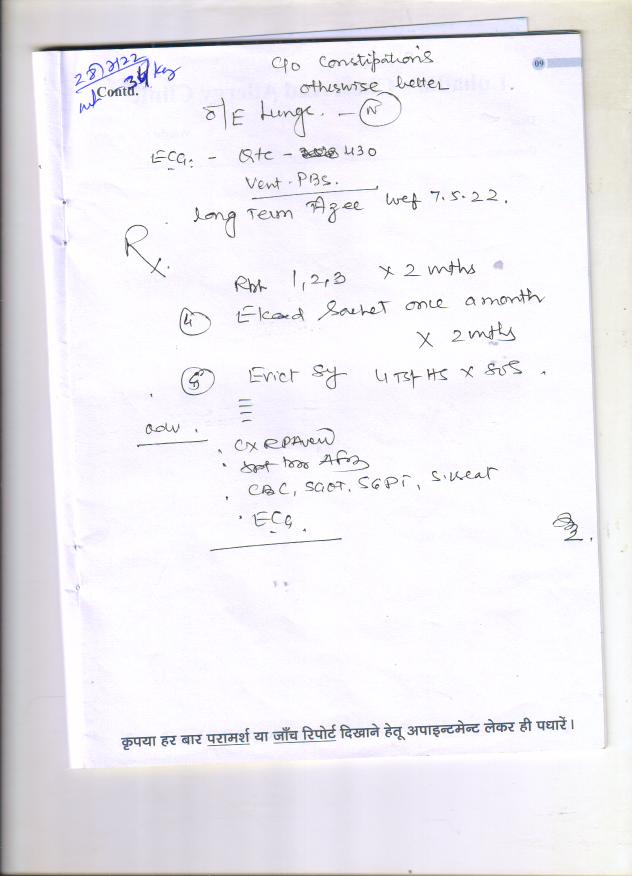 09
Contd.
wt 34 kg
C/o Constipation's
otherwise better
O/E Lungs. - N
ECG. - Qtc - 430
Vent. PBS.
long Term Azee wef 7.5.22.
Rx.
Rpt 1, 2, 3 x 2 mths
4 Ekcod Sachet once a month
x 2 mths
5 Evict Sy 4 TSF HS x SOS.
adv.
CX R PA view
CBC, SGOT, SGPT, S. creat
ECG.
कृपया हर बार परामर्श या जाँच रिपोर्ट दिखाने हेतू अपाइन्टमेन्ट लेकर ही पधारें।